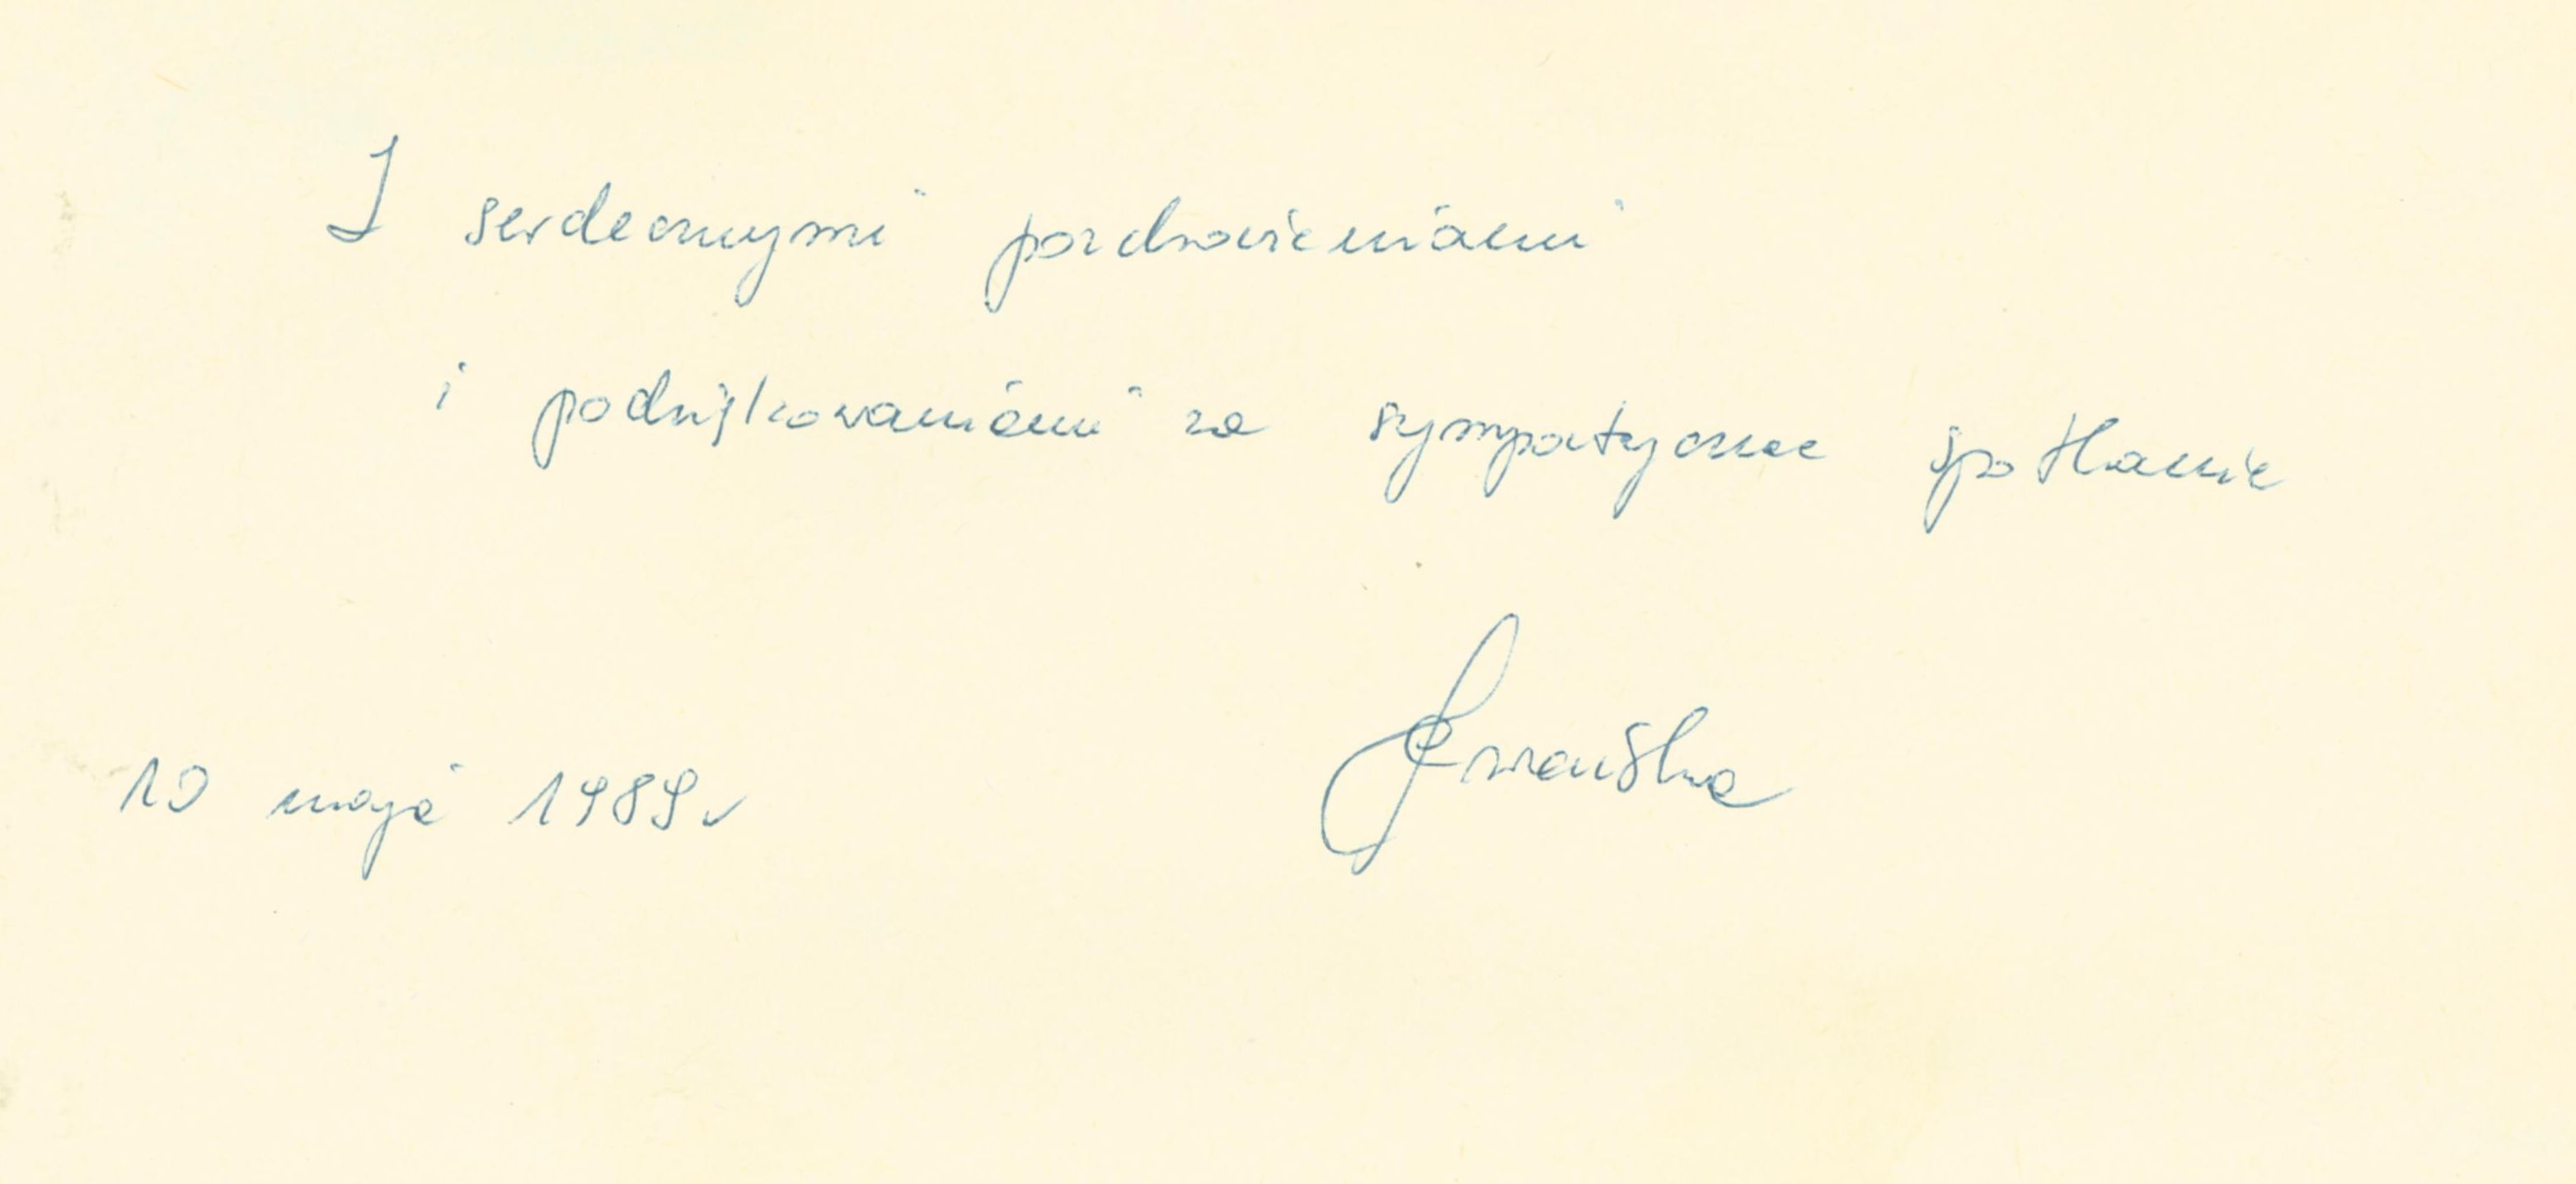 Z serdecznymi pozdrowieniami
i podziękowaniami za sympatyczne spotkanie
10 maja 1989 r